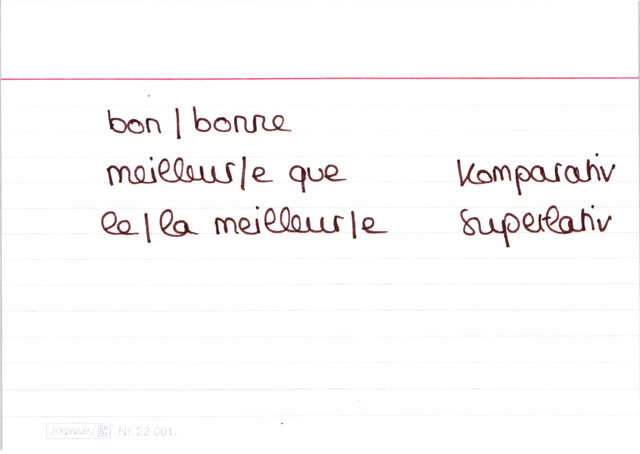 bon | bonne
meilleur/e que Komparativ
le/la meilleur/e Superlativ
Nr. 22 601